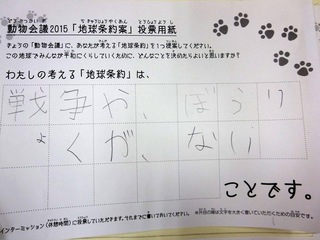 動物会議2015「地球条約案」投票用紙
きょうの「動物会議」に、あなたが考える「地球条約」を1つ提案してください。
この地球でみんなが平和にくらしていくために、どんなことを決めたらよいと思いますか?
わたしの考える「地球条約」は、
戦争や、ぼうり
ょくが、ない
ことです。
インターミッション(休憩時間)に投票していただきます。それまでに書いておいてください。